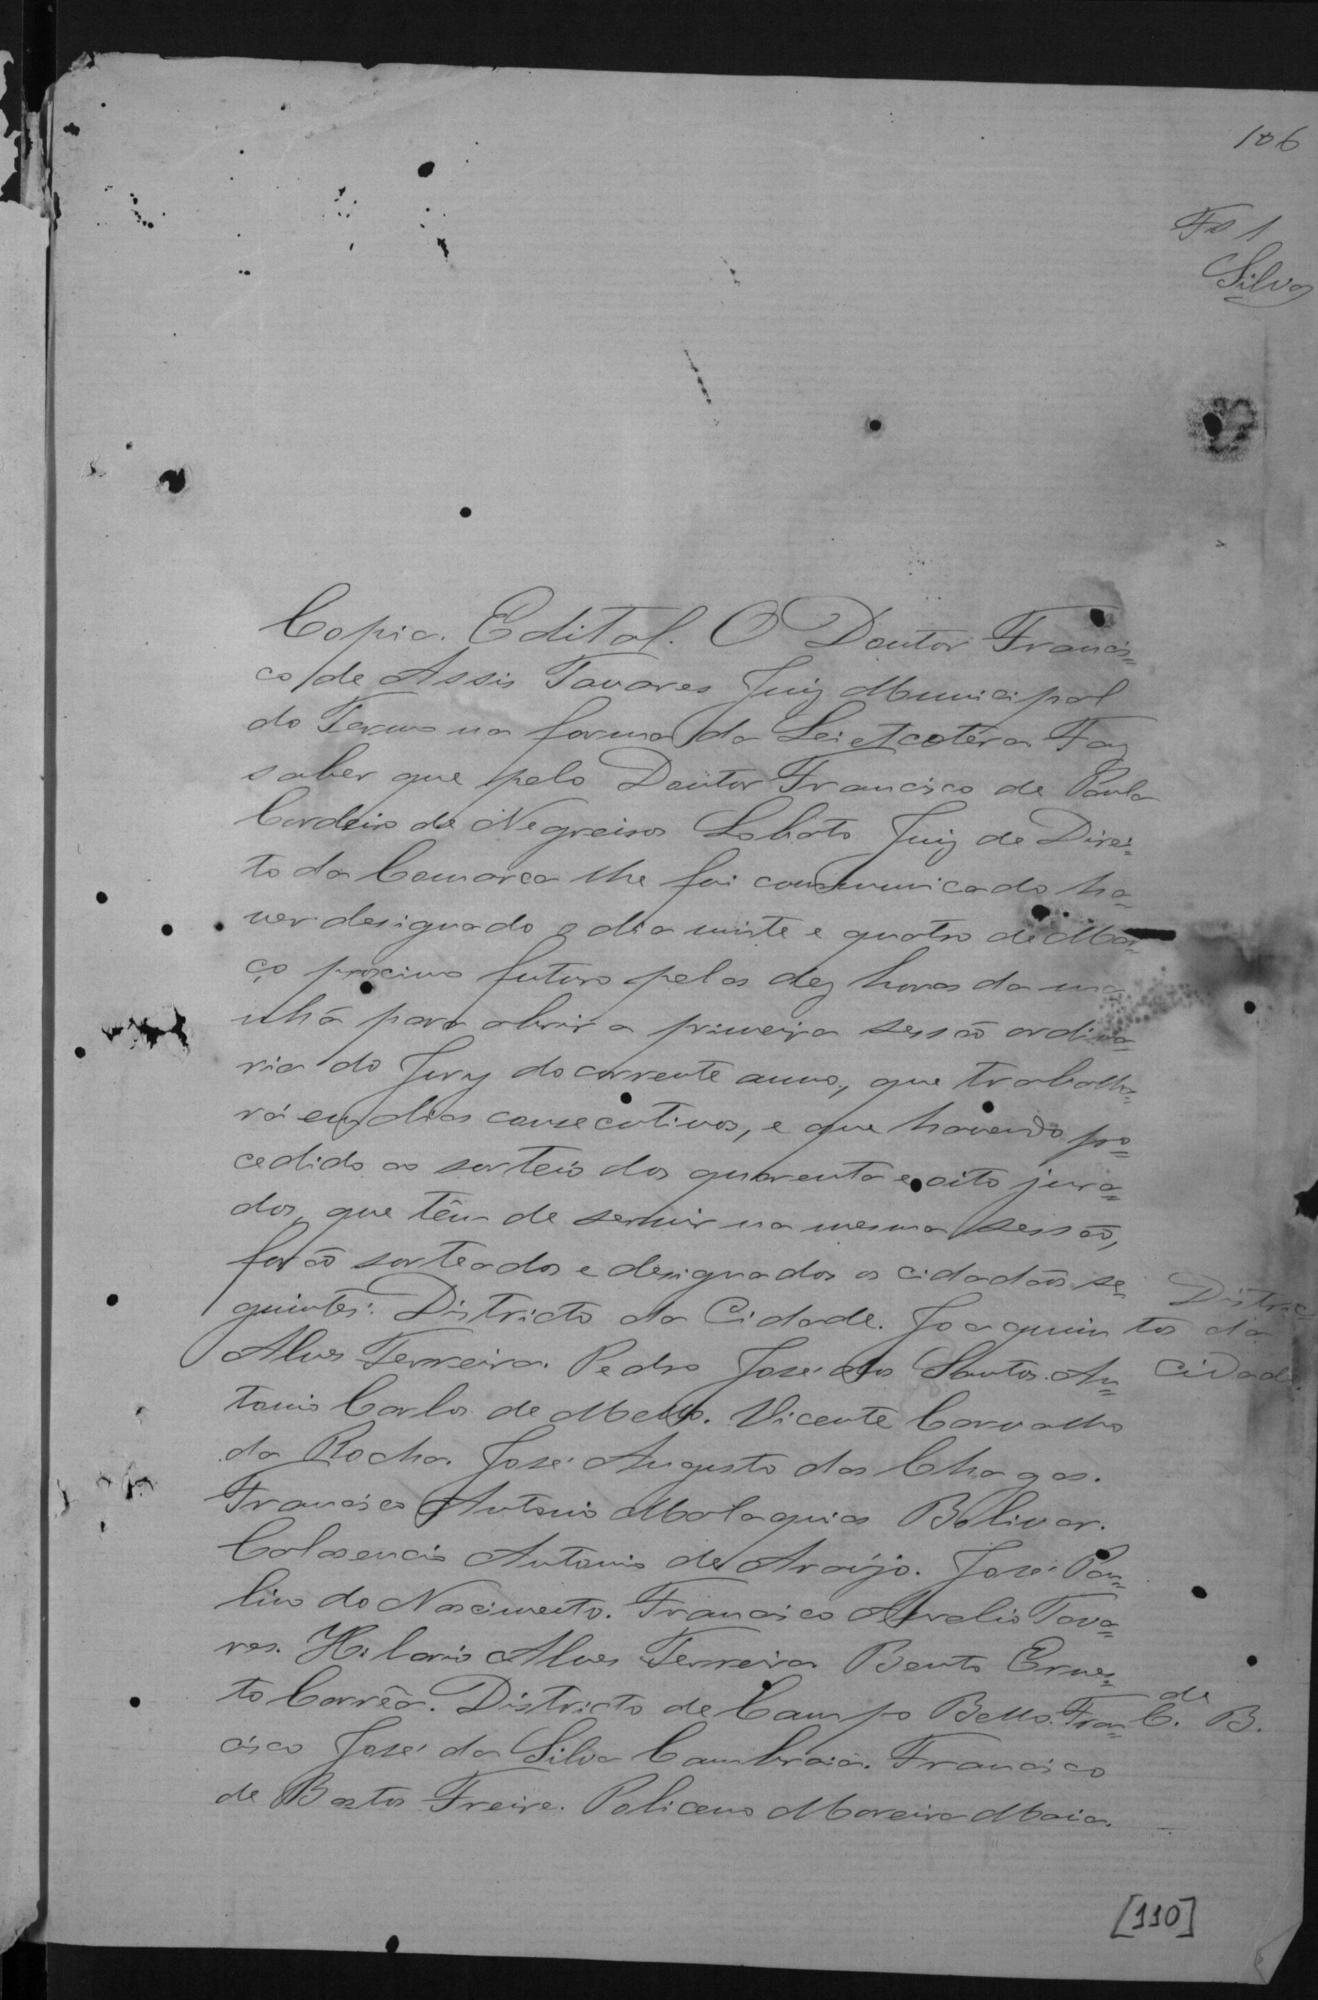 106
Fs 1
Silva
Copia. Edital. O Doutor Francis=
co de Assis Tavares Juiz Municipal
do Termo na forma da Lei etcetera Faz
saber que pelo Doutor Francisco de Paula
Cordeiro de Negreiros Lobato Juiz de Direi=
to da Comarca lhe foi communicado ha=
ver designado o dia vinte e quatro de Mar=
ço proximo futuro pelas dez horas da ma=
nhã para abrir a primeira sessão ordina=
ria do Jury do corrente anno, que trabalha=
rá em dias consecutivos, e que havendo pro=
cedido ao sorteio dos quarenta e oito jura=
dos, que têm de servir na mesma sessão,
forão sorteados e designados os cidadãos se=
guintes: Districto da Cidade. Joaquim
Distric=
tos da
Cidade.
Alves Ferreira. Pedro José dos Santos. An=
tonio Carlos de Mello. Vicente Carvalho
da Rocha. José Augusto das Chagas.
Francisco Antonio Malaquias Bolivar.
Antonio de Araújo. José Pau=
lino do Nascimento. Francisco Aurelio Tava=
res. Hilario Alves Ferreira Bento Ernes=
to Corrêa. Districto de Campo Bello. Fran=
de
C. B.
cisco José da Silva Cambraia. Francisco
de Bastos Freire. Policeno Moreira Maia.
[110]